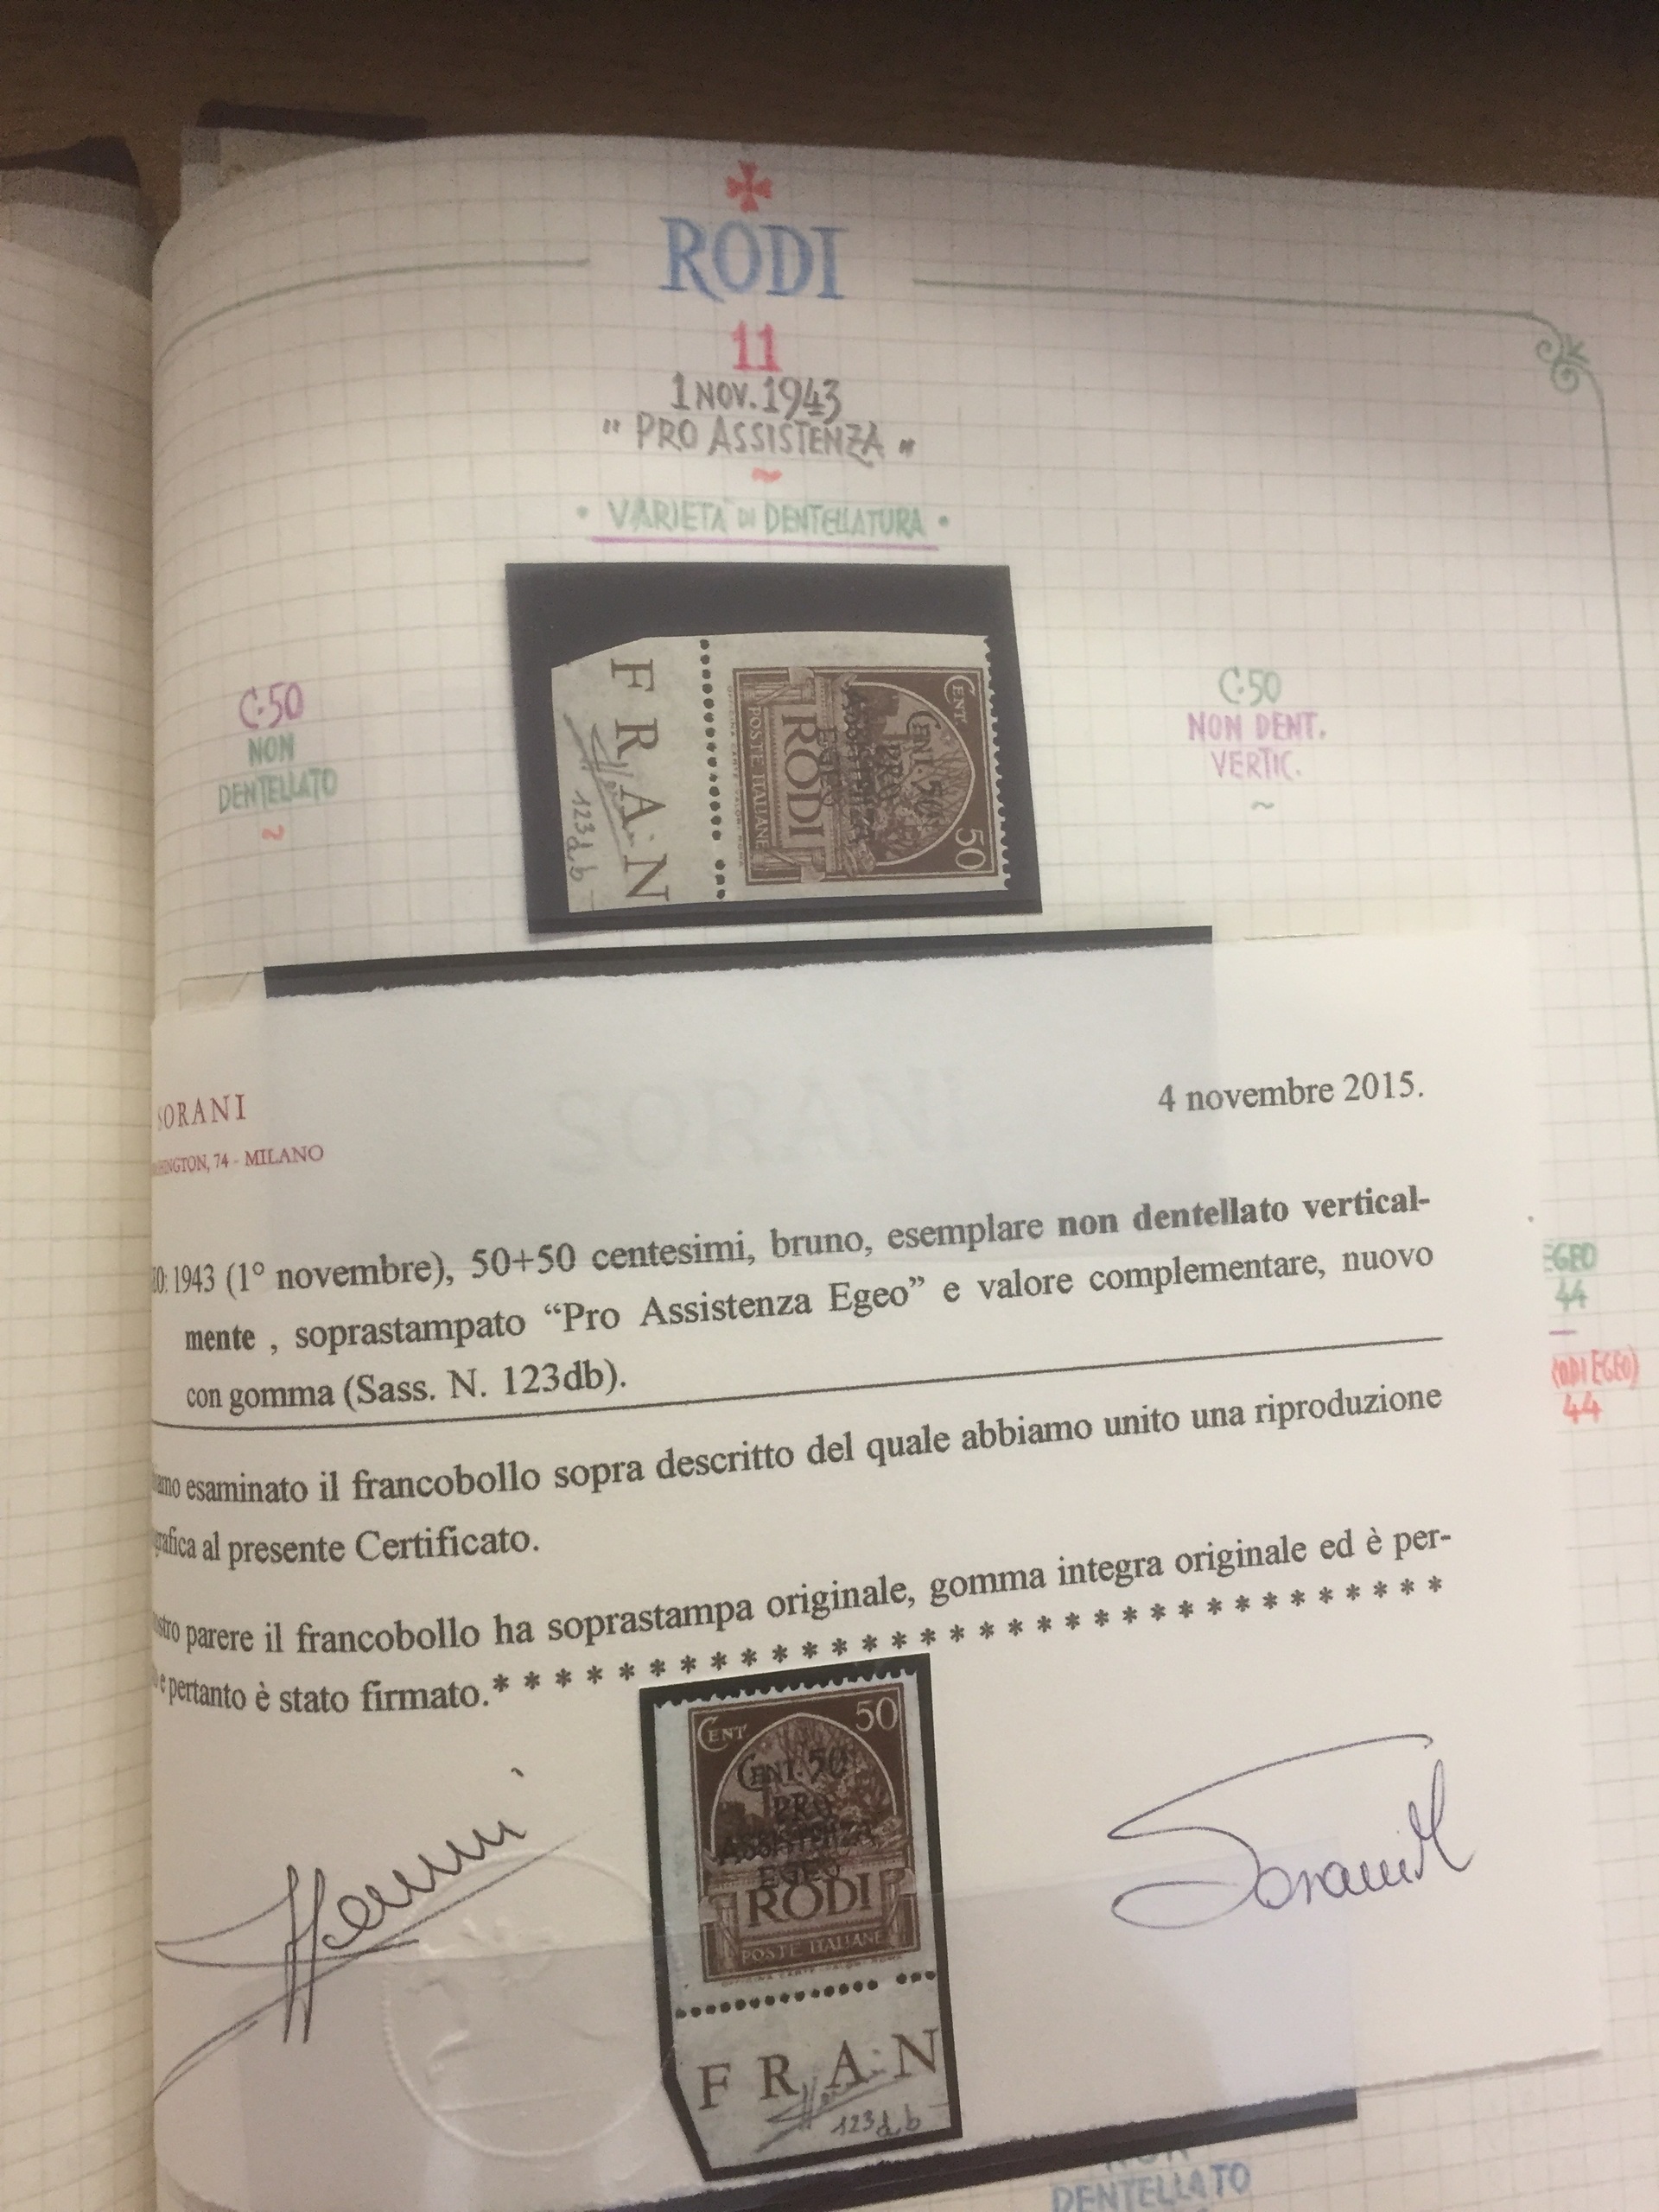 RODI
11
1 NOV. 1943
" PRO ASSISTENZA "
~
• VARIETÀ DI DENTELLATURA •
C.50
NON
DENTELLATO
~
FRAN
123db
OFFICINA CARTE-VALORI ROMA
POSTE ITALIANE
RODI
CENT. 50
PRO
ASSISTENZA
EGEO
CENT
50
C.50
NON DENT.
VERTIC.
~
SORANI
SORANI
4 novembre 2015.
74 - MILANO
1943 (1° novembre), 50+50 centesimi, bruno, esemplare non dentellato vertical-
mente , soprastampato “Pro Assistenza Egeo” e valore complementare, nuovo
con gomma (Sass. N. 123db).
EGEO
44
44
esaminato il francobollo sopra descritto del quale abbiamo unito una riproduzione
al presente Certificato.
parere il francobollo ha soprastampa originale, gomma integra originale ed è per-
e pertanto è stato firmato.* * * * * * * * * * * * * * * * * * * * * * * * * * * * * * * *
CENT
50
CENT. 50
PRO
ASSISTENZA
EGEO
RODI
POSTE ITALIANE
FRAN
123db
Sorani
NON
DENTELLATO